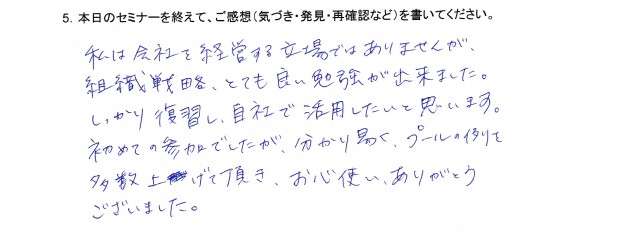 5. 本日のセミナーを終えて、ご感想（気づき・発見・再確認など）を書いてください。
私は会社を経営する立場ではありませんが、
組織戦略、とても良い勉強が出来ました。
しっかり復習し、自社で活用したいと思います。
初めての参加でしたが、分かり易く、プールの例りを
多数上げて頂き、お心使い、ありがとう
ございました。